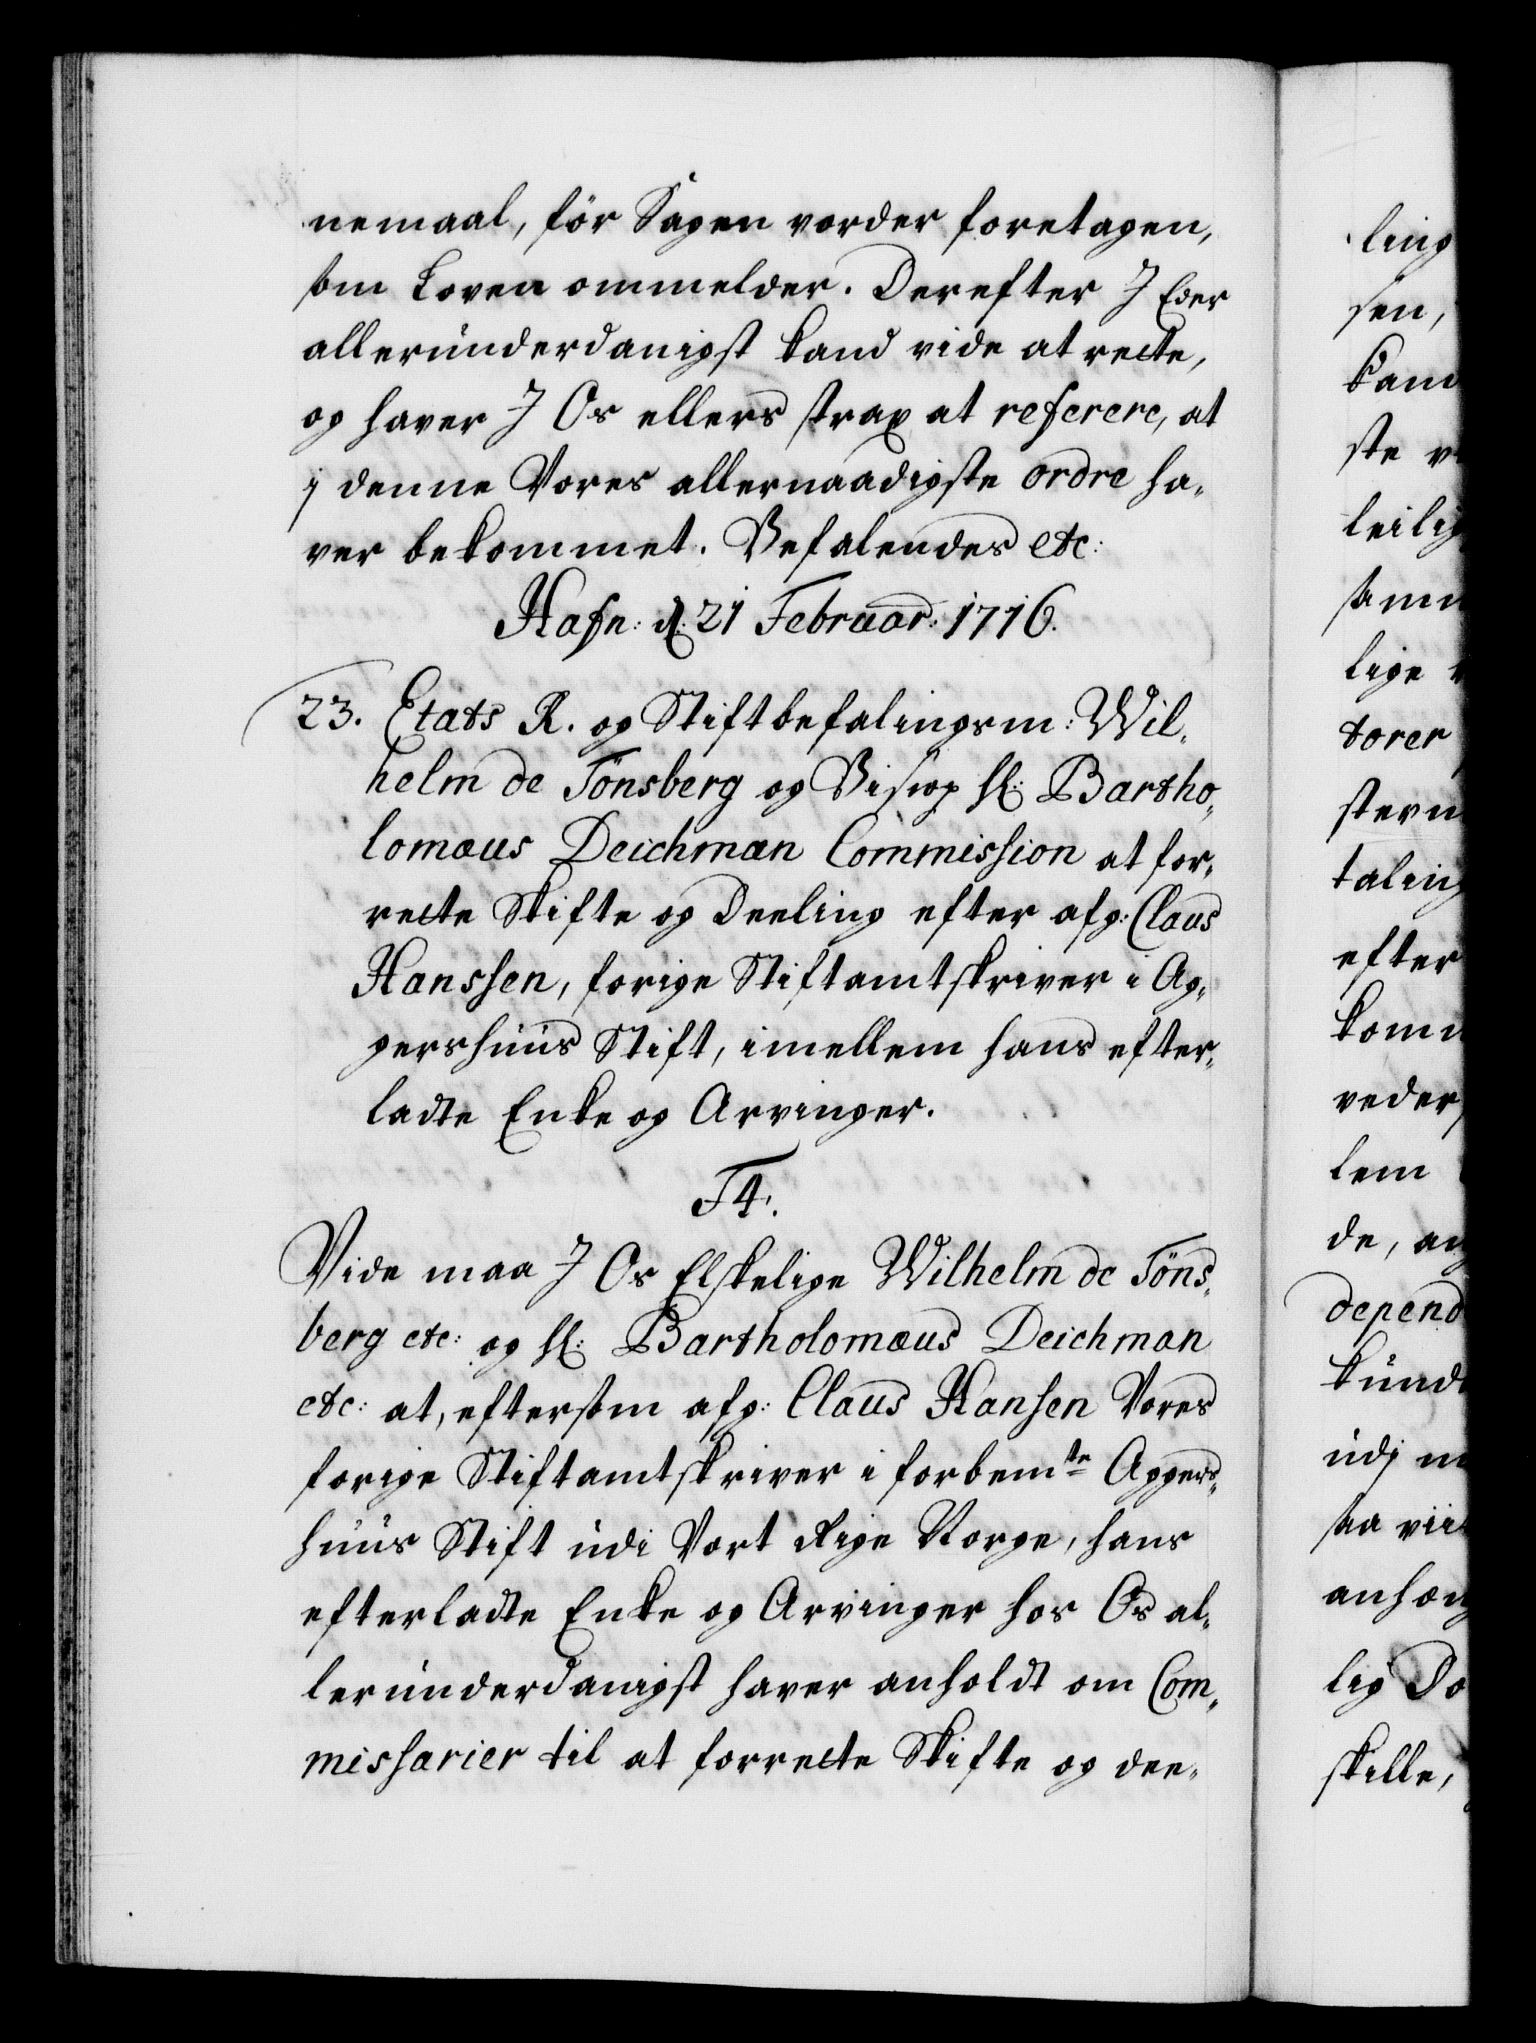 nemaal, för Sagen vorder foretagen,
som Loven ommelder. Derefter J Eder
allerunderdanigst kand vide at rette,
og haver J Os ellers strax at referere, at
j denne Vores allernaadigste ordre ha-
ver bekommet. Befalendes etc:
Hafn: d: 21 Februar: 1716.
23. Etats R. og Stiftbefalingsm: Wil-
helm de Tönsberg og Bisop Hr: Bartho-
lomæus Deichman Commission at for-
rette Skifte og Deeling efter afg: Claus
Hanssen, forige Stiftamtskriver i Ag-
gershuus Stift, imellem hans efter-
ladte Enke og Arvinger.
F4.
Vide maa J Os Elskelige Wilhelm de Töns-
berg etc: og Hr: Bartholomæus Deichman
etc: at, eftersom afg: Claus Hansen Vores
forige Stiftamtskriver i forbemte Aggers-
huus Stift udi Vort Rige Norge, hans
efterladte Enke og Arvinger hos Os al-
lerunderdanigst haver anholdt om Com-
missarier til at forrette Skifte og dee-
ling
sen,
kand
ste
leilig
samm
lige
torer
stevn
taling
efter
komm
veder
lem
de, an
depend
kund
udj
saa vii
anhæng
lig Do
skille,